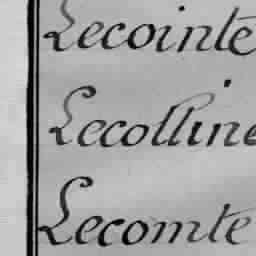 Lecointe
Lecolline
Lecomte